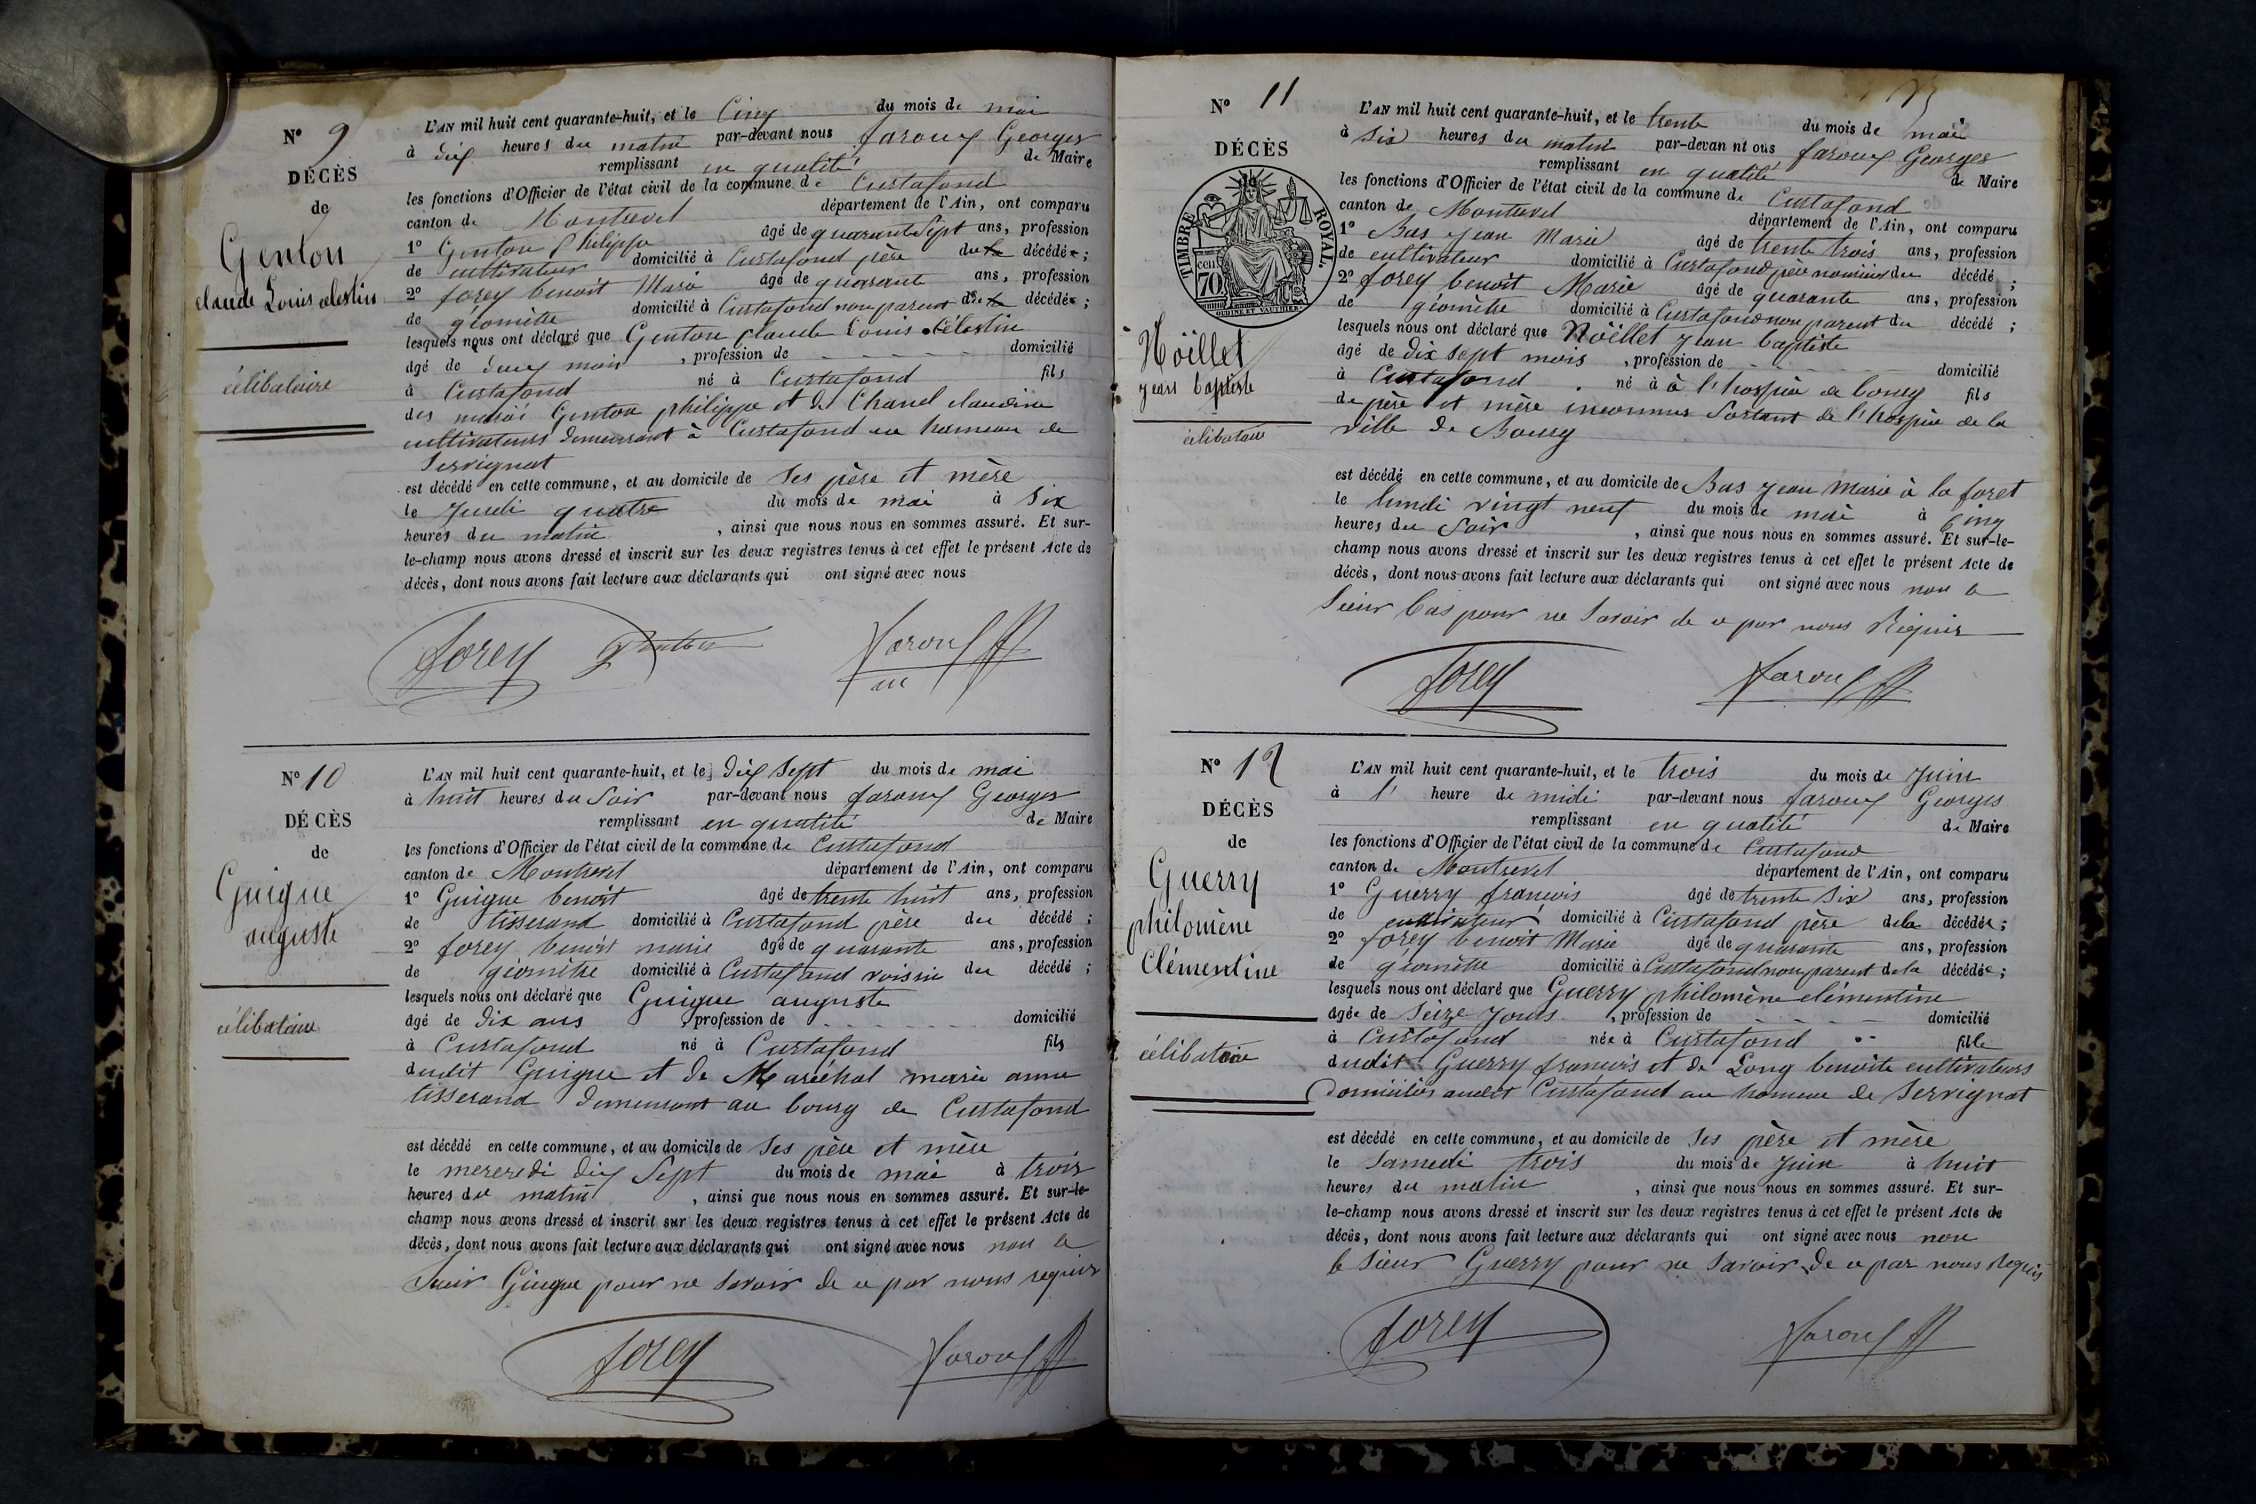 N° 9
DÉCÈS
de
Genton
claude Louis célestin
célibataire
L'AN mil huit cent quarante-huit, et le Cinq du mois de mai
à dix heures du matin par-devant nous faroux Georges
remplissant en qualité de Maire
les fonctions d'Officier de l'état civil de la commune de Curtafond
canton de Montrevel département de l'Ain, ont comparu
1° Genton philippe âgé de quarante Sept ans, profession
de cultivateur domicilié à Curtafond père du décédé ;
2° forey benoit Marie âgé de quarante ans, profession
de géomètre domicilié à Curtafond non parent du décédé ;
lesquels nous ont déclaré que Genton claude Louis célestin
âgé de deux mois , profession de domicilié
à Curtafond né à Curtafond fils
des mariés Genton philippe et de Chanel claudine
cultivateurs demeurant à Curtafond au hameau de
Servignat
est décédé en cette commune, et au domicile de Ses père et mère
le Jeudi quatre du mois de mai à Six
heures du matin , ainsi que nous nous en sommes assuré. Et sur-
le-champ nous avons dressé et inscrit sur les deux registres tenus à cet effet le présent Acte de
décès, dont nous avons fait lecture aux déclarants qui ont signé avec nous
forey Genton faroux
N° 10
DÉCÈS
de
Guigue
auguste
célibataire
L'AN mil huit cent quarante-huit, et le dix Sept du mois de mai
à huit heures du Soir par-devant nous faroux Georges
remplissant en qualité de Maire
les fonctions d'Officier de l'état civil de la commune de Curtafond
canton de Montrevel département de l'Ain, ont comparu
1° Guigue benoit âgé de trente huit ans, profession
de tisserand domicilié à Curtafond père du décédé ;
2° forey benoit marie âgé de quarante ans, profession
de géomètre domicilié à Curtafond voisin du décédé ;
lesquels nous ont déclaré que Guigue auguste
âgé de dix ans , profession de domicilié
à Curtafond né à Curtafond fils
dudit Guigue et de Maréchal marie anne
tisserand demeurant au bourg de Curtafond
est décédé en cette commune, et au domicile de Ses père et mère
le mercredi dix Sept du mois de mai à trois
heures du matin , ainsi que nous nous en sommes assuré. Et sur-le-
champ nous avons dressé et inscrit sur les deux registres tenus à cet effet le présent Acte de
décès, dont nous avons fait lecture aux déclarants qui ont signé avec nous non le
Sieur Guigue pour ne Savoir de ce par nous requis
forey faroux
N° 11
DÉCÈS
de
TIMBRE ROYAL.
70
Noëllet
jean baptiste
célibataire
L'AN mil huit cent quarante-huit, et le trente du mois de mai
à Six heures du matin par-devan nt ous faroux Georges
remplissant en qualité de Maire
les fonctions d'Officier de l'état civil de la commune de Curtafond
canton de Montrevel département de l'Ain, ont comparu
1° Bas Jean Marie âgé de trente trois ans, profession
de cultivateur domicilié à Curtafond père nourricier du décédé ;
2° forey benoit Marie âgé de quarante ans, profession
de géomètre domicilié à Curtafond non parent du décédé ;
lesquels nous ont déclaré que Noëllet Jean baptiste
âgé de dix Sept mois , profession de domicilié
à Curtafond né à à l'hospice de bourg fils
de père et mère inconnus Sortant de l'hospice de la
ville de Bourg
est décédé en cette commune, et au domicile de Bas Jean Marie à la foret
le lundi vingt neuf du mois de mai à Cinq
heures du Soir , ainsi que nous nous en sommes assuré. Et sur-le-
champ nous avons dressé et inscrit sur les deux registres tenus à cet effet le présent Acte de
décès, dont nous avons fait lecture aux déclarants qui ont signé avec nous non le
Sieur bas pour ne Savoir de ce par nous Requis
forey faroux
N° 12
DÉCÈS
de
Guerry
philomène
Clémentine
célibataire
L'AN mil huit cent quarante-huit, et le trois du mois de Juin
à l' heure de midi par-devant nous faroux Georges
remplissant en qualité de Maire
les fonctions d'Officier de l'état civil de la commune de Curtafond
canton de Montrevel département de l'Ain, ont comparu
1° Guerry francois âgé de trente Six ans, profession
de cultivateur domicilié à Curtafond père de la décédée ;
2° forey benoit Marie âgé de quarante ans, profession
de géomètre domicilié à Curtafond non parent de la décédée ;
lesquels nous ont déclaré que Guerry philomène clémentine
âgée de Seize Jours , profession de domicilié
à Curtafond née à Curtafond fille
dudit Guerry francois et de Long benoite cultivateurs
Domiciliés audit Curtafond au hameau de Servignat
est décédé en cette commune, et au domicile de Ses père et mère
le Samedi trois du mois de Juin à huit
heures du matin , ainsi que nous nous en sommes assuré. Et sur-
le-champ nous avons dressé et inscrit sur les deux registres tenus à cet effet le présent Acte de
décès, dont nous avons fait lecture aux déclarants qui ont signé avec nous non
le Sieur Guerry pour ne Savoir de ce par nous Requis
forey faroux